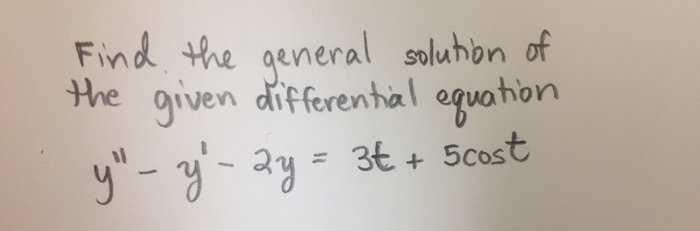 Find the general solution of
the given differential equation
y" - y' - 2y = 3t + 5cost